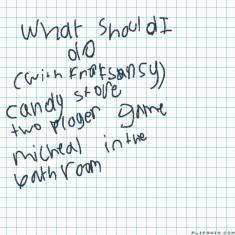 What should I
do
(with FnafSansy)
candy store
two player game
micheal in the
bathroom
FLIPANIM.COM